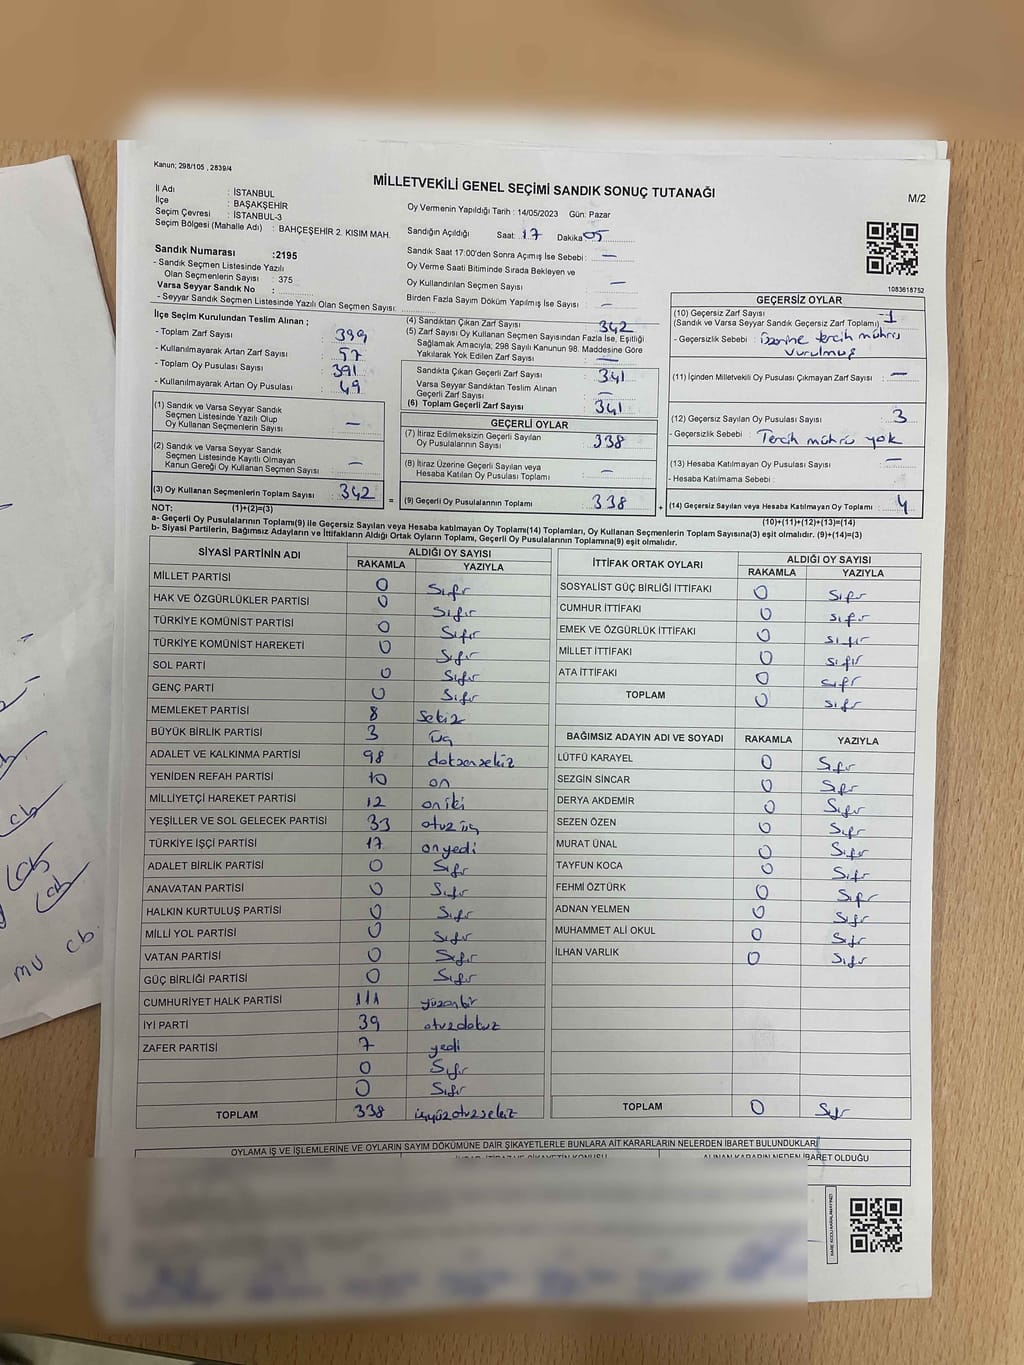 Kanun; 298/105 , 2839/4
MİLLETVEKİLİ GENEL SEÇİMİ SANDIK SONUÇ TUTANAĞI
M/2
İl Adı : İSTANBUL
İlçe : BAŞAKŞEHİR
Seçim Çevresi : İSTANBUL-3
Seçim Bölgesi (Mahalle Adı) : BAHÇEŞEHİR 2. KISIM MAH.
Oy Vermenin Yapıldığı Tarih : 14/05/2023 Gün: Pazar
Sandığın Açıldığı Saat: 17 Dakika 05
Sandık Saat 17:00'den Sonra Açılmış İse Sebebi : —
Oy Verme Saati Bitiminde Sırada Bekleyen ve
Oy Kullandırılan Seçmen Sayısı : —
Birden Fazla Sayım Döküm Yapılmış İse Sayısı : —
Sandık Numarası :2195
- Sandık Seçmen Listesinde Yazılı
Olan Seçmenlerin Sayısı : 375
Varsa Seyyar Sandık No :
- Seyyar Sandık Seçmen Listesinde Yazılı Olan Seçmen Sayısı:
1083618752
İlçe Seçim Kurulundan Teslim Alınan ;
- Toplam Zarf Sayısı : 399
- Kullanılmayarak Artan Zarf Sayısı : 57
- Toplam Oy Pusulası Sayısı : 391
- Kullanılmayarak Artan Oy Pusulası : 49
(1) Sandık ve Varsa Seyyar Sandık
Seçmen Listesinde Yazılı Olup
Oy Kullanan Seçmenlerin Sayısı : —
(2) Sandık ve Varsa Seyyar Sandık
Seçmen Listesinde Kayıtlı Olmayan
Kanun Gereği Oy Kullanan Seçmen Sayısı : —
(3) Oy Kullanan Seçmenlerin Toplam Sayısı : 342
(1)+(2)=(3)
(4) Sandıktan Çıkan Zarf Sayısı : 342
(5) Zarf Sayısı Oy Kullanan Seçmen Sayısından Fazla İse, Eşitliği
Sağlamak Amacıyla; 298 Sayılı Kanunun 98. Maddesine Göre
Yakılarak Yok Edilen Zarf Sayısı : —
Sandıkta Çıkan Geçerli Zarf Sayısı : 341
Varsa Seyyar Sandıktan Teslim Alınan
Geçerli Zarf Sayısı : —
(6) Toplam Geçerli Zarf Sayısı : 341
GEÇERLİ OYLAR
(7) İtiraz Edilmeksizin Geçerli Sayılan
Oy Pusulalarının Sayısı : 338
(8) İtiraz Üzerine Geçerli Sayılan veya
Hesaba Katılan Oy Pusulası Toplamı : —
= (9) Geçerli Oy Pusulalarının Toplamı : 338
GEÇERSİZ OYLAR
(10) Geçersiz Zarf Sayısı : 1
(Sandık ve Varsa Seyyar Sandık Geçersiz Zarf Toplamı)
- Geçersizlik Sebebi : üzerine tercih mührü
vurulmuş
(11) İçinden Milletvekili Oy Pusulası Çıkmayan Zarf Sayısı : —
(12) Geçersiz Sayılan Oy Pusulası Sayısı : 3
- Geçersizlik Sebebi : Tercih mührü yok
(13) Hesaba Katılmayan Oy Pusulası Sayısı : —
- Hesaba Katılmama Sebebi :
+ (14) Geçersiz Sayılan veya Hesaba Katılmayan Oy Toplamı : 4
(10)+(11)+(12)+(13)=(14)
NOT:
a- Geçerli Oy Pusulalarının Toplamı(9) ile Geçersiz Sayılan veya Hesaba katılmayan Oy Toplamı(14) Toplamları, Oy Kullanan Seçmenlerin Toplam Sayısına(3) eşit olmalıdır. (9)+(14)=(3)
b- Siyasi Partilerin, Bağımsız Adayların ve İttifakların Aldığı Ortak Oyların Toplamı, Geçerli Oy Pusulalarının Toplamına(9) eşit olmalıdır.
SİYASİ PARTİNİN ADI ALDIĞI OY SAYISI
RAKAMLA YAZIYLA
MİLLET PARTİSİ 0 Sıfır
HAK VE ÖZGÜRLÜKLER PARTİSİ 0 Sıfır
TÜRKİYE KOMÜNİST PARTİSİ 0 Sıfır
TÜRKİYE KOMÜNİST HAREKETİ 0 Sıfır
SOL PARTİ 0 Sıfır
GENÇ PARTİ 0 Sıfır
MEMLEKET PARTİSİ 8 sekiz
BÜYÜK BİRLİK PARTİSİ 3 üç
ADALET VE KALKINMA PARTİSİ 98 doksansekiz
YENİDEN REFAH PARTİSİ 10 on
MİLLİYETÇİ HAREKET PARTİSİ 12 oniki
YEŞİLLER VE SOL GELECEK PARTİSİ 33 otuzüç
TÜRKİYE İŞÇİ PARTİSİ 17 onyedi
ADALET BİRLİK PARTİSİ 0 Sıfır
ANAVATAN PARTİSİ 0 Sıfır
HALKIN KURTULUŞ PARTİSİ 0 Sıfır
MİLLİ YOL PARTİSİ 0 Sıfır
VATAN PARTİSİ 0 Sıfır
GÜÇ BİRLİĞİ PARTİSİ 0 Sıfır
CUMHURİYET HALK PARTİSİ 111 yüzonbir
İYİ PARTİ 39 otuzdokuz
ZAFER PARTİSİ 7 yedi
0 Sıfır
0 Sıfır
TOPLAM 338 üçyüzotuzsekiz
İTTİFAK ORTAK OYLARI ALDIĞI OY SAYISI
RAKAMLA YAZIYLA
SOSYALİST GÜÇ BİRLİĞİ İTTİFAKI 0 Sıfır
CUMHUR İTTİFAKI 0 sıfır
EMEK VE ÖZGÜRLÜK İTTİFAKI 0 sıfır
MİLLET İTTİFAKI 0 sıfır
ATA İTTİFAKI 0 sıfır
TOPLAM 0 sıfır
BAĞIMSIZ ADAYIN ADI VE SOYADI RAKAMLA YAZIYLA
LÜTFÜ KARAYEL 0 Sıfır
SEZGİN SİNCAR 0 Sıfır
DERYA AKDEMİR 0 Sıfır
SEZEN ÖZEN 0 Sıfır
MURAT ÜNAL 0 Sıfır
TAYFUN KOCA 0 Sıfır
FEHMİ ÖZTÜRK 0 Sıfır
ADNAN YELMEN 0 Sıfır
MUHAMMET ALİ OKUL 0 Sıfır
İLHAN VARLIK 0 Sıfır
TOPLAM 0 Sıfır
OYLAMA İŞ VE İŞLEMLERİNE VE OYLARIN SAYIM DÖKÜMÜNE DAİR ŞİKAYETLERLE BUNLARA AİT KARARLARIN NELERDEN İBARET BULUNDUKLARI
İTİRAZ VE ŞİKAYETİN KONUSU ALINAN KARARIN NEDEN İBARET OLDUĞU
cb
cb
cb
mv cb.